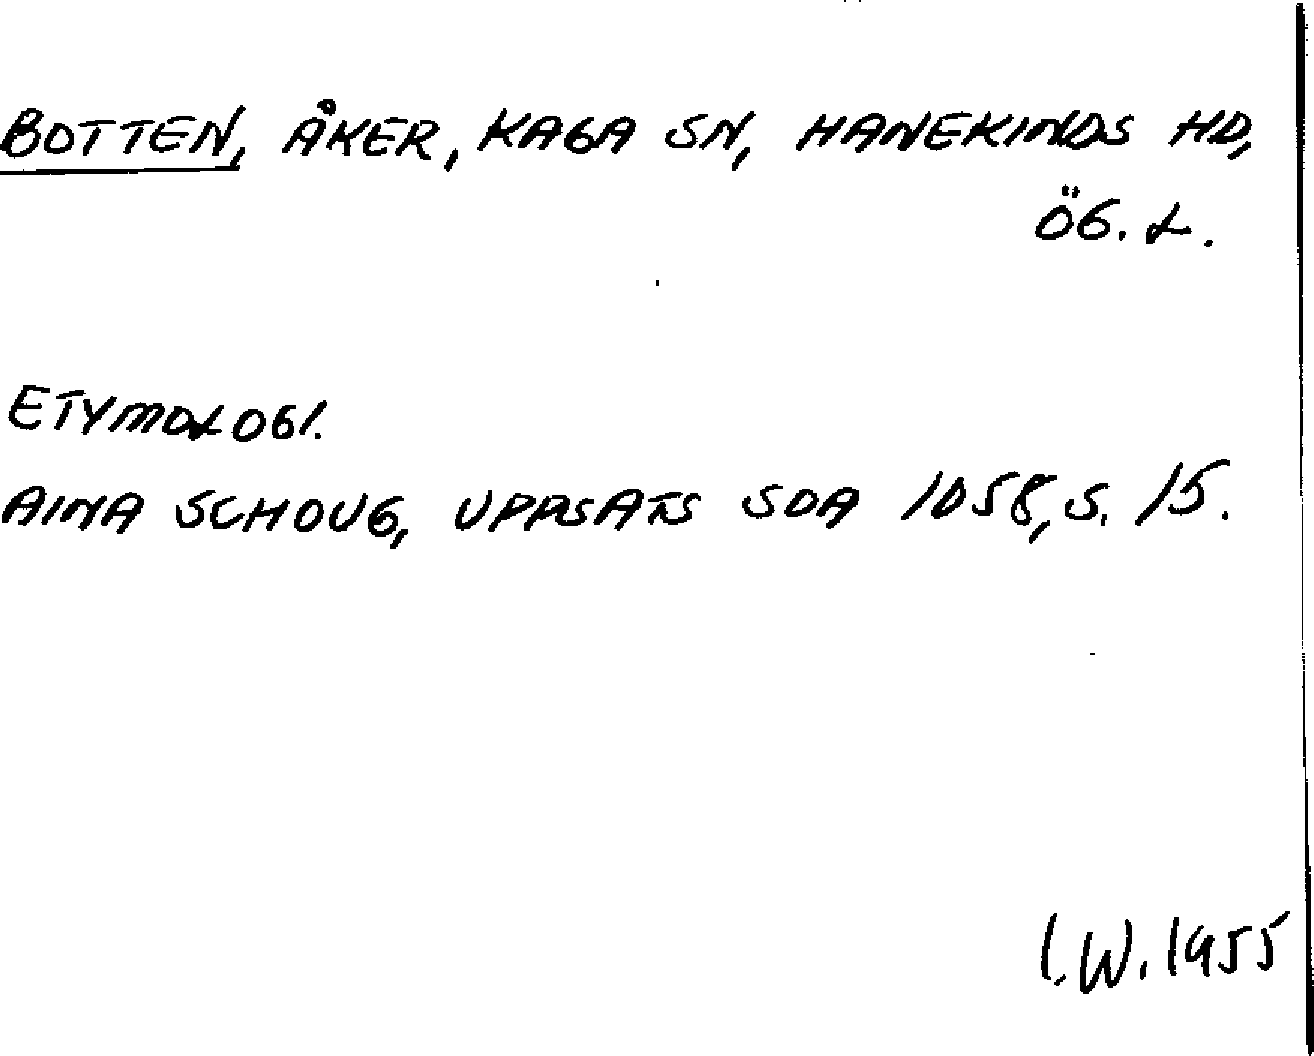 BOTTEN, ÅKER, KAGA SN, HANEKINDS HD,
ÖG. L.
ETYMOLOGI.
AINA SCHOUG, UPPSATS SOA 1058, S. 15.
I. W. 1955